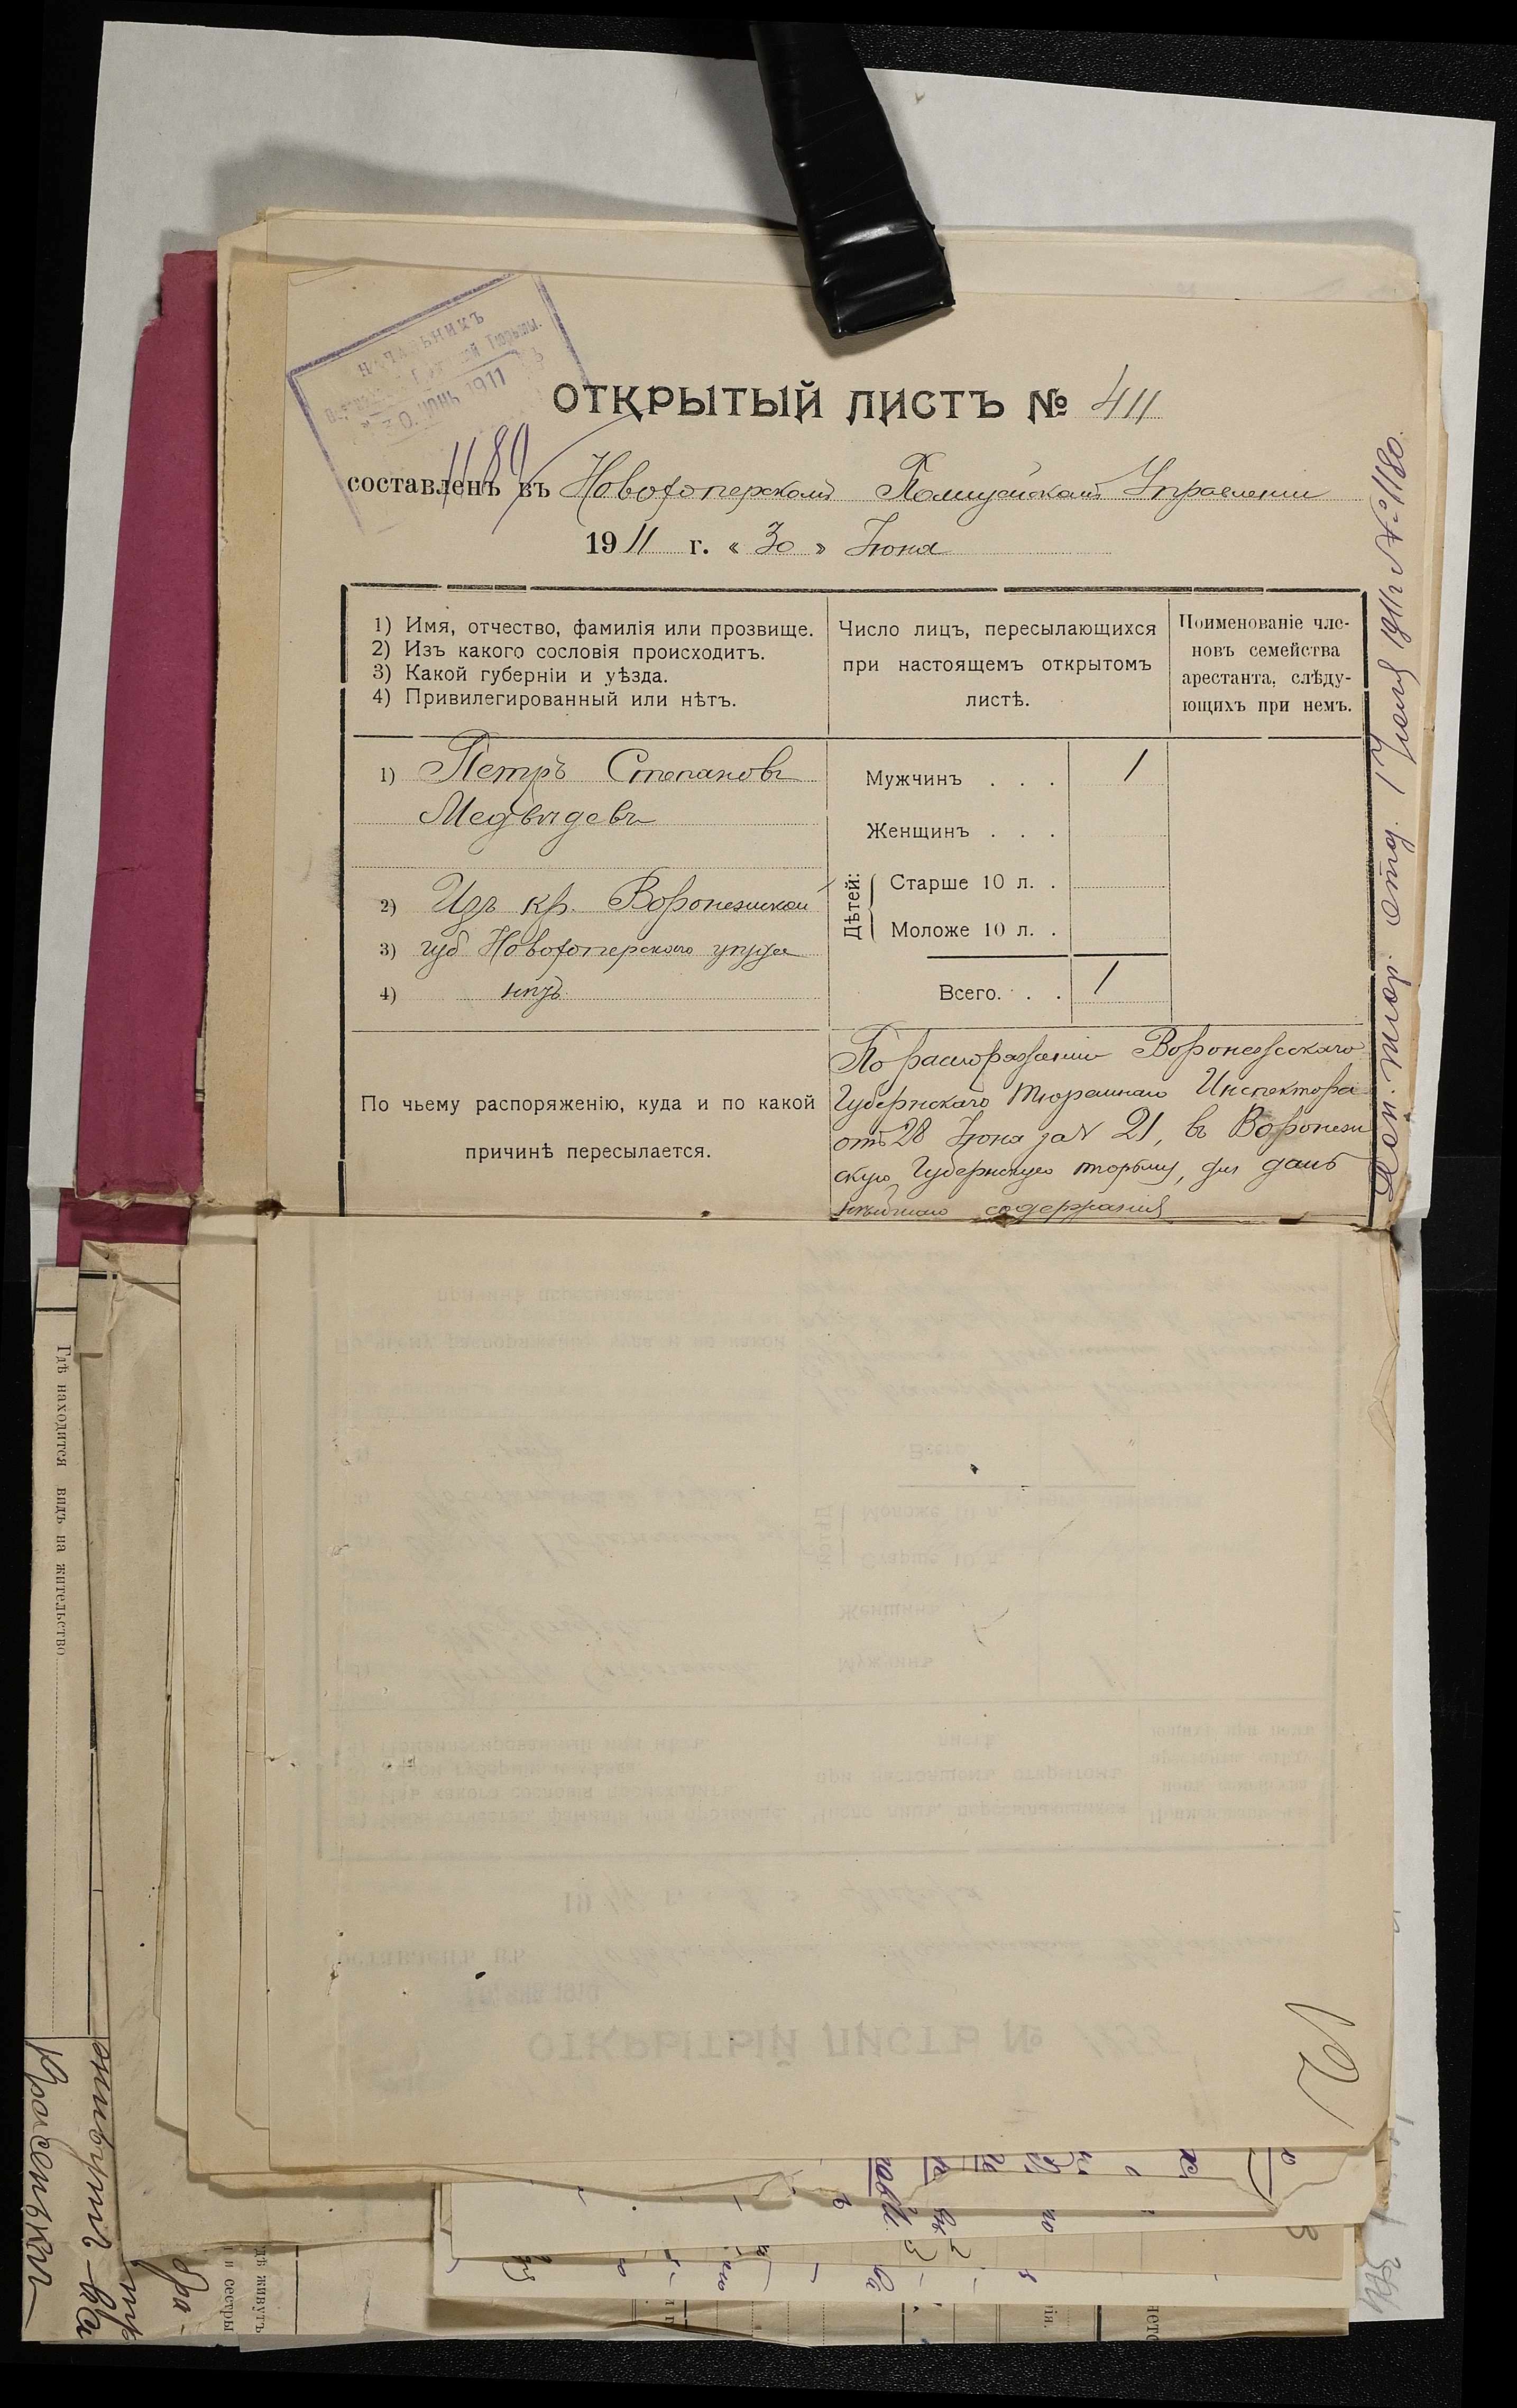 НАЧАЛЬНИКЪ
Тюрьмы.
30. ИЮНЬ 1911
1180
ОТКРЫТЫЙ ЛИСТЪ № 411
составленъ въ Новохоперскомъ Полицейскомъ Управлении
1911 г. « 30 » Іюня
1) Имя, отчество, фамилія или прозвище.
2) Изъ какого сословія происходитъ.
3) Какой губерніи и уѣзда.
4) Привилегированный или нѣтъ.
Число лицъ, пересылающихся
при настоящемъ открытомъ
листѣ.
Поименованіе чле-
новъ семейства
арестанта, слѣду-
ющихъ при немъ.
1) Петръ Степановъ
Медвѣдевъ
2) Изъ кр. Воронежской
3) губ Новохоперскаго уѣзда
4) нѣтъ
Мужчинъ . . . 1
Женщинъ . . .
Дѣтей:
Старше 10 л. .
Моложе 10 л. .
Всего. . . 1
По чьему распоряженію, куда и по какой
причинѣ пересылается.
По распоряженію Воронежскаго
Губернскаго Тюремнаго Инспектора
отъ 28 Іюня за № 21, въ Воронеж
скую Губернскую тюрьму, для даль
нѣйшаго содержанія
отд. 1 Іюля 1911 г. № 1180.
Гдѣ находится видъ на жительство
дѣ живутъ
и сестры